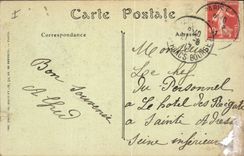 Carte Postale
Correspondance
Bon Souvenir
Alfred
Monsieur
Le chef
du Personnel
à l'hotel des Régates
à Sainte Adresse
Seine inférieure